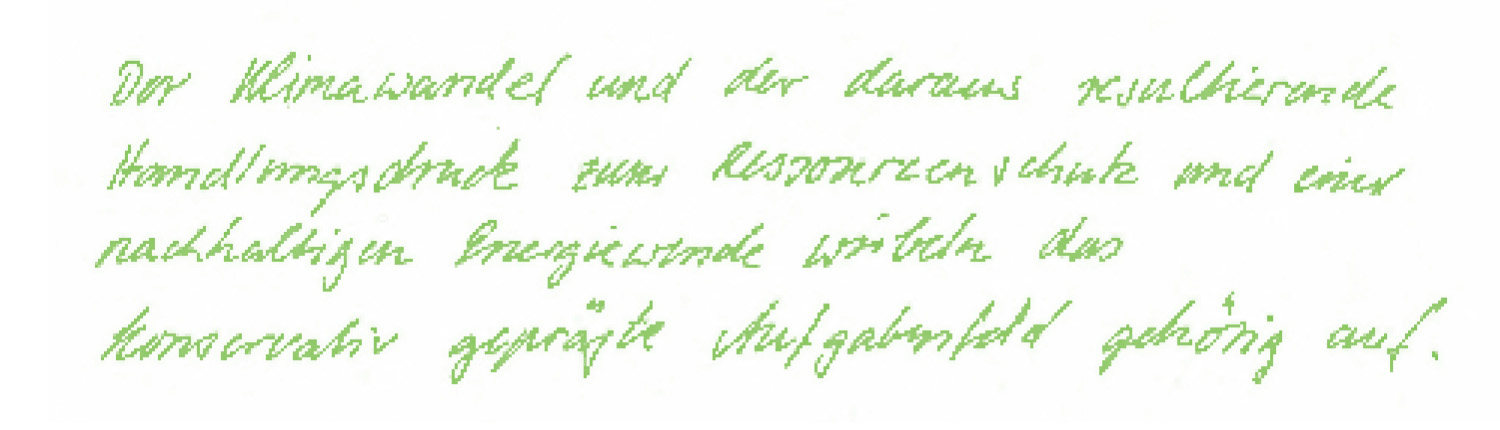 Der Klimawandel und der daraus resultierende
Handlungsdruck zum Ressourcenschutz und einer
nachhaltigen Energiewende wirbeln das
konservativ geprägte Aufgabenfeld gehörig auf.